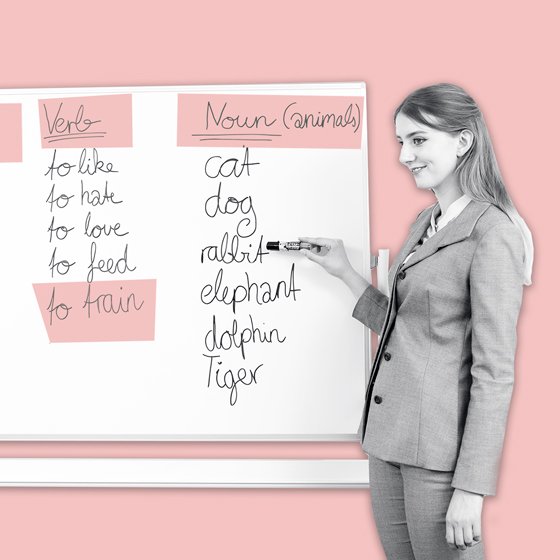 Verb
to like
to hate
to love
to feed
to train
Noun (animals)
cat
dog
rabbit
elephant
dolphin
Tiger